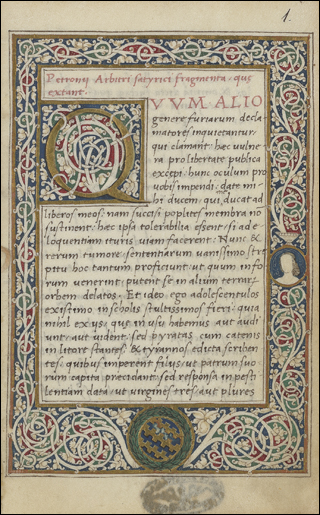 1.
Petronij Arbitri satyrici fragmenta. quę
extant.
QVVM ALIO
genere furiarum decla
matores inquietantur
qui clamant: hæc vulne
ra pro libertate publica
excepi. hunc oculum pro
vobis impendi. date mi-
hi ducem: qui ducat ad
liberos meos: nam succisi poplites membra no
sustinent. hæc ipsa tolerabilia essent: si ad e
loquentiam ituris viam facerent. Nunc &
rerum tumore: sententiarum vanissimo stre
pitu hoc tantum proficiunt: ut quum in fo
rum venerint: putent se in alium terrar
orbem delatos. Et ideo ego adolescentulos
existimo in scholis stultissimos fieri: quia
nihil ex ijs: quę in usu habemus aut audi
unt: aut vident. sed pyratas cum catenis
in litore stantes: & tyrannos edicta scriben
tes: quibus imperent filijs: ut patrum suo
rum capita præcidant: sed responsa in pesti
lentiam data: ut virgines tres: aut plures